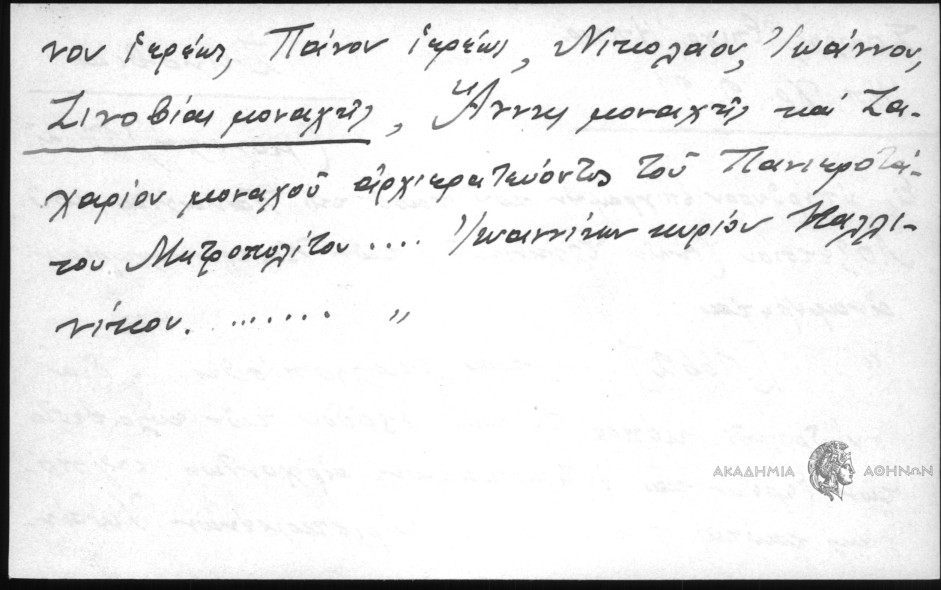 νου ἱερέως, Πάνου ἱερέως, Νικολάου, Ἰωάννου,
Ζινοβίας μοναχῆς, Ἄννης μοναχῆς καί Ζα-
χαρίου μοναχοῦ ἀρχιερατεύοντος τοῦ Πανιεροτά-
του Μητροπολίτου .... Ἰωαννίνων κυρίου Καλλι-
νίκου. ....... "
ΑΚΑΔΗΜΙΑ ΑΘΗΝΩΝ